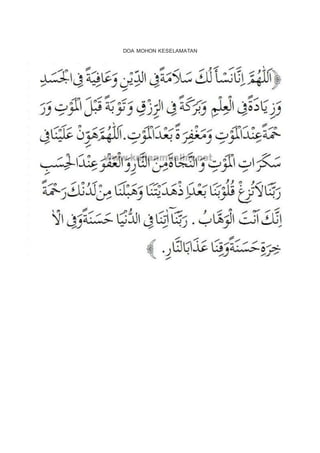 DOA MOHON KESELAMATAN
﴿اَللّٰهُمَّ اِنَّا نَسْأَلُكَ سَلَامَةً فِى الدِّيْنِ وَعَافِيَةً فِى الْجَسَدِ
وَزِيَادَةً فِى الْعِلْمِ وَبَرَكَةً فِى الرِّزْقِ وَتَوْبَةً قَبْلَ الْمَوْتِ وَرَ
حْمَةً عِنْدَ الْمَوْتِ وَمَغْفِرَةً بَعْدَ الْمَوْتِ. اَللّٰهُمَّ هَوِّنْ عَلَيْنَا فِى
سَكَرَاتِ الْمَوْتِ وَالنَّجَاةَ مِنَ النَّارِ وَالْعَفْوَ عِنْدَ الْحِسَبِ
رَبَّنَا لَاتُزِغْ قُلُوْبَنَا بَعْدَ اِذْهَدَيْتَنَا وَهَبْ لَنَا مِنْ لَدُنْكَ رَحْمَةً
اِنَّكَ اَنْتَ الْوَهَّابُ . رَبَّنَا آتِنَا فِى الدُّنْيَا حَسَنَةً وَفِى اْلأ
خِرَةِ حَسَنَةً وَقِنَا عَذَابَ النَّارِ. ﴾